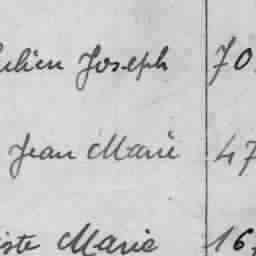 Julien Joseph 70
Jean Marie 47
iste Marie 16